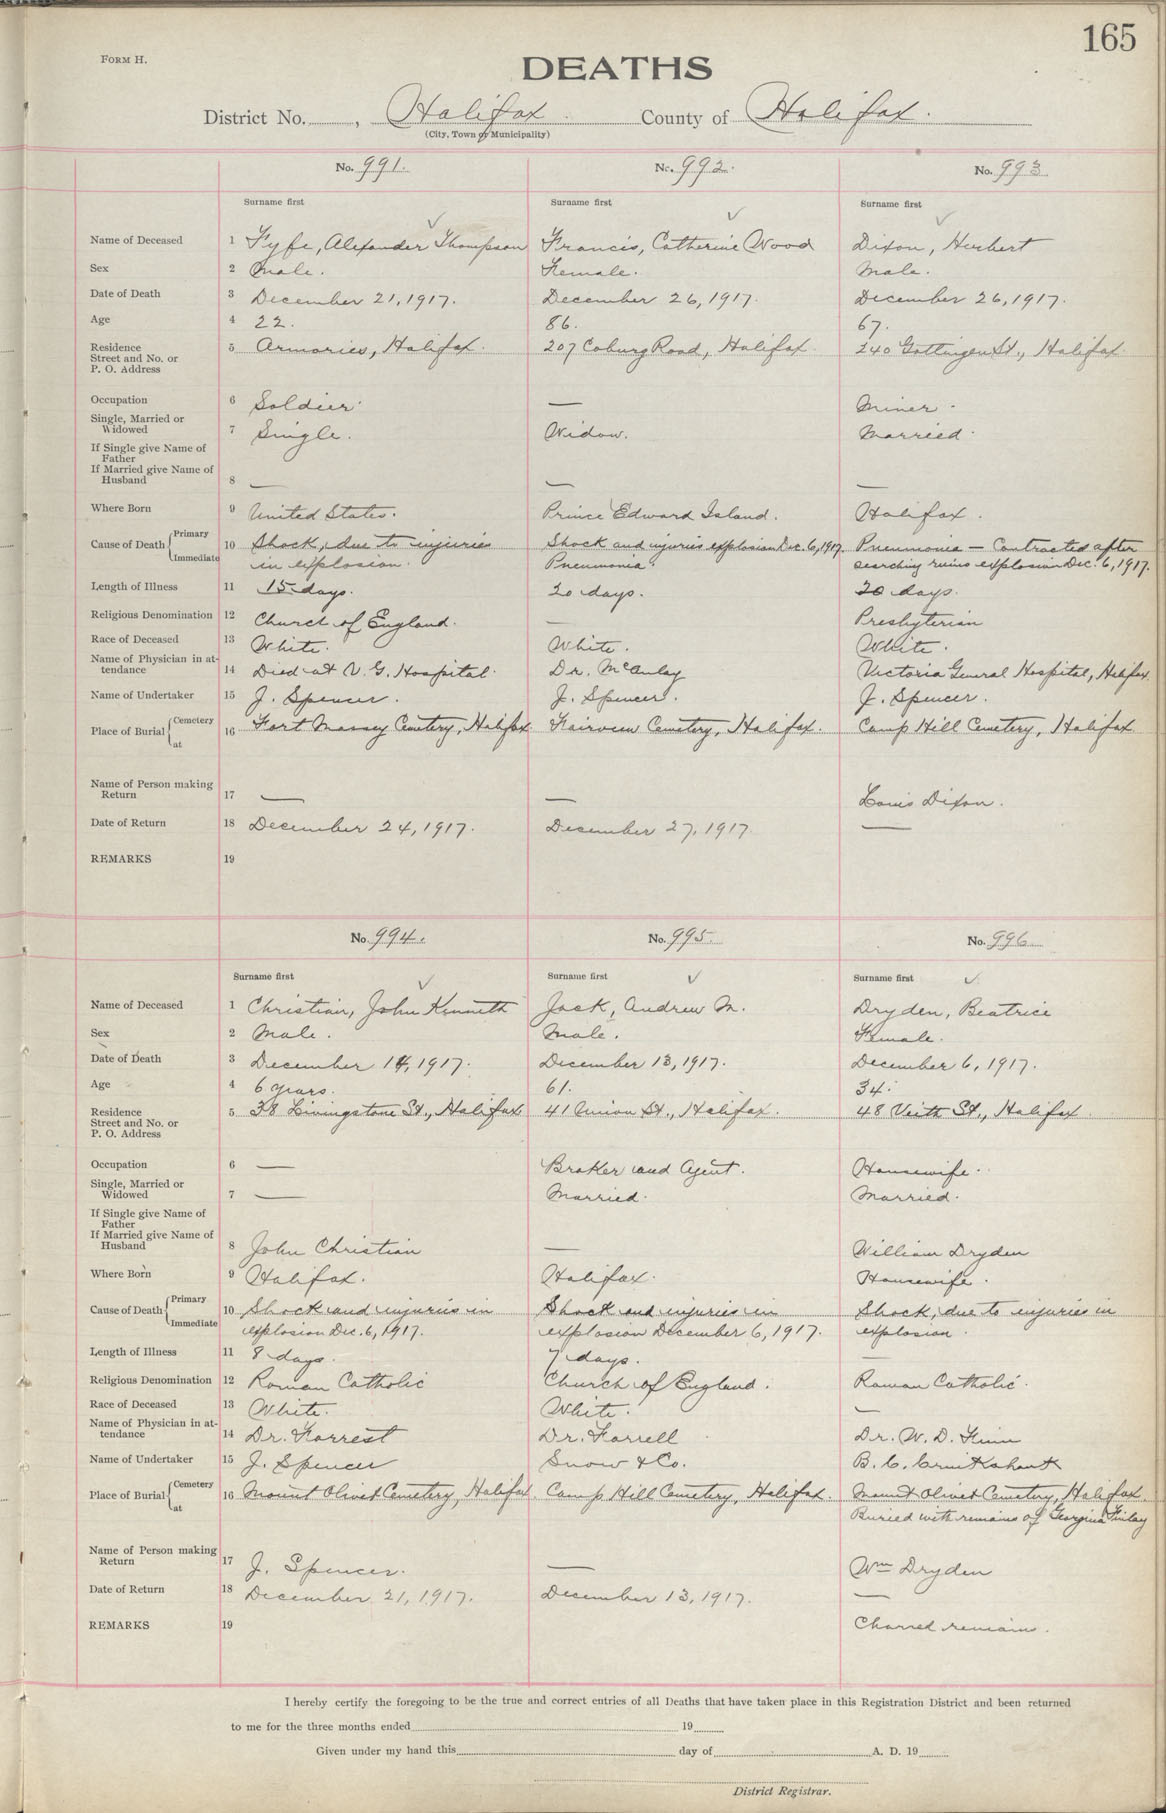 165
FORM H.
DEATHS
District No. , Halifax County of Halifax.
(City, Town or Municipality)
No. 991. No. 992. No. 993
Surname first Surname first Surname first
Name of Deceased 1 Fyfe, Alexander Thompson Francis, Catherine Wood Dixon, Herbert
Sex 2 Male. Female. Male.
Date of Death 3 December 21, 1917. December 26, 1917. December 26, 1917.
Age 4 22. 86. 67.
Residence 5 Armories, Halifax. 207 Coburg Road, Halifax 240 Gottingen St., Halifax.
Street and No. or
P. O. Address
Occupation 6 Soldier — Miner.
Single, Married or
Widowed 7 Single. Widow. Married.
If Single give Name of
Father
If Married give Name of
Husband 8 — — —
Where Born 9 United States. Prince Edward Island. Halifax.
Cause of Death Primary 10 Shock, due to injuries Shock and injuries explosion Dec. 6, 1917. Pneumonia — Contracted after
Immediate in explosion. Pneumonia. searching ruins explosion Dec. 6, 1917.
Length of Illness 11 15 days. 20 days. 20 days.
Religious Denomination 12 Church of England. — Presbyterian
Race of Deceased 13 White. White. White.
Name of Physician in at-
tendance 14 Died at V. G. Hospital. Dr. McAulay Victoria General Hospital, Halifax.
Name of Undertaker 15 J. Spencer. J. Spencer. J. Spencer.
Place of Burial Cemetery at 16 Fort Massey Cemetery, Halifax. Fairview Cemetery, Halifax. Camp Hill Cemetery, Halifax
Name of Person making
Return 17 — — Louis Dixon.
Date of Return 18 December 24, 1917. December 27, 1917. —
REMARKS 19
No. 994. No. 995. No. 996
Surname first Surname first Surname first
Name of Deceased 1 Christian, John Kenneth Jack, Andrew M. Dryden, Beatrice
Sex 2 Male. Male. Female.
Date of Death 3 December 14, 1917. December 13, 1917. December 6, 1917.
Age 4 6 years. 61. 34.
Residence 5 38 Livingstone St., Halifax 41 Union St., Halifax. 48 Veith St., Halifax
Street and No. or
P. O. Address
Occupation 6 — Broker and Agent. Housewife.
Single, Married or
Widowed 7 — Married. Married.
If Single give Name of
Father
If Married give Name of
Husband 8 John Christian — William Dryden
Where Born 9 Halifax. Halifax. Housewife.
Cause of Death Primary 10 Shock and injuries in Shock and injuries in Shock, due to injuries in
Immediate explosion Dec. 6, 1917. explosion December 6, 1917. explosion.
Length of Illness 11 8 days. 7 days. —
Religious Denomination 12 Roman Catholic Church of England. Roman Catholic.
Race of Deceased 13 White. White. —
Name of Physician in at-
tendance 14 Dr. Forrest Dr. Farrell Dr. W. D. Finn
Name of Undertaker 15 J. Spencer Snow & Co. B. C. Cruikshank
Place of Burial Cemetery at 16 Mount Olivet Cemetery, Halifax. Camp Hill Cemetery, Halifax. Mount Olivet Cemetery, Halifax.
Buried with remains of Georgina Finlay
Name of Person making
Return 17 J. Spencer. — Wm Dryden
Date of Return 18 December 21, 1917. December 13, 1917. —
REMARKS 19 Charred remains.
I hereby certify the foregoing to be the true and correct entries of all Deaths that have taken place in this Registration District and been returned
to me for the three months ended 19
Given under my hand this day of A. D. 19
District Registrar.